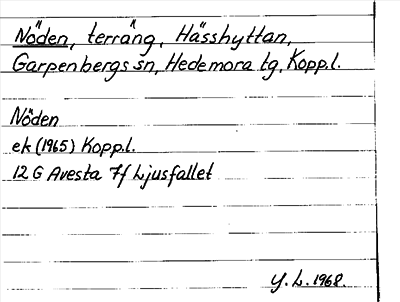 Nöden, terräng, Hässhyttan,
Garpenbergs sn, Hedemora tg, Kopp.l.
Nöden
ek (1965) Kopp.l.
12 G Avesta 7f Ljusfallet
Y. L. 1968.